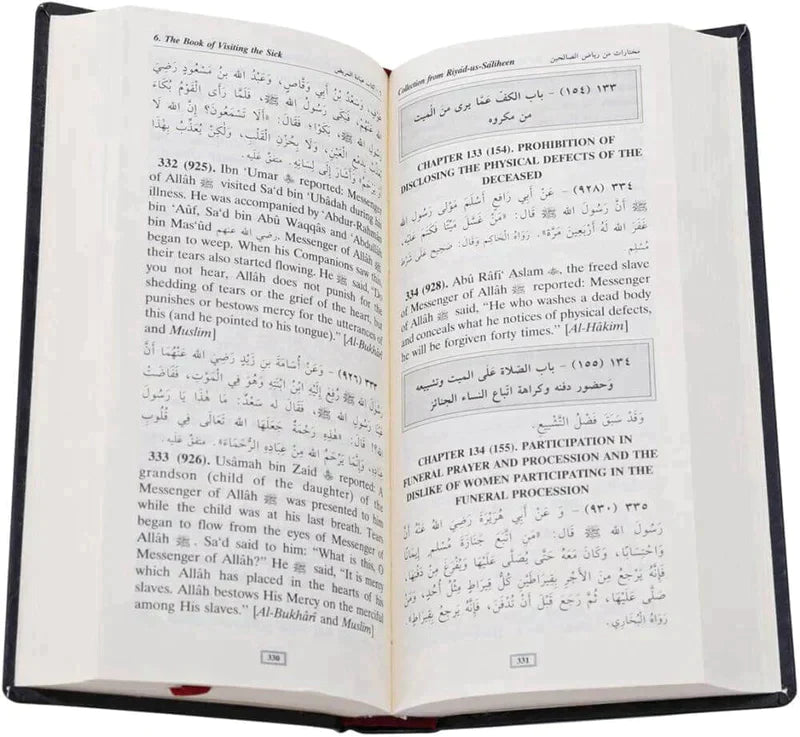 6. The Book of Visiting the Sick
٦- كتاب عيادة المريض
عَوْفٍ، وَسَعْدُ بْنُ أَبِي وَقَّاصٍ، وَعَبْدُ اللهِ بْنُ مَسْعُودٍ رَضِيَ
اللهُ عَنْهُم، فَبَكَى رَسُولُ اللهِ ﷺ، فَلَمَّا رَأَى الْقَوْمُ بُكَاءَ
رَسُولِ اللهِ ﷺ، بَكَوْا؛ فَقَالَ: «أَلَا تَسْمَعُونَ؟ إِنَّ اللهَ لَا
يُعَذِّبُ بِدَمْعِ الْعَيْنِ، وَلَا بِحُزْنِ الْقَلْبِ، وَلَكِنْ يُعَذِّبُ بِهَذَا
أَوْ يَرْحَمُ» وَأَشَارَ إِلَى لِسَانِهِ. متفقٌ عليه.
332 (925). Ibn ‘Umar reported: Messenger
of Allâh ﷺ visited Sa‘d bin ‘Ubâdah during his
illness. He was accompanied by ‘Abdur-Rahmân
bin ‘Aûf, Sa‘d bin Abû Waqqâs and ‘Abdullâh
bin Mas‘ûd رضي الله عنهم. Messenger of Allâh ﷺ
began to weep. When his Companions saw this,
their tears also started flowing. He ﷺ said, “Do
you not hear, Allâh does not punish for the
shedding of tears or the grief of the heart, but
punishes or bestows mercy for the utterances of
this (and he pointed to his tongue).” [Al-Bukhârî
and Muslim]
٣٣٣ (٩٢٦) - وَعَنْ أُسَامَةَ بْنِ زَيْدٍ رَضِيَ اللهُ عَنْهُمَا أَنَّ
رَسُولَ اللهِ ﷺ رُفِعَ إِلَيْهِ ابْنُ ابْنَتِهِ وَهُوَ فِي الْمَوْتِ، فَفَاضَتْ
عَيْنَا رَسُولِ اللهِ ﷺ، فَقَالَ له سَعْدٌ: مَا هَذَا يَا رَسُولَ
اللهِ؟! قَالَ: «هَذِهِ رَحْمَةٌ جَعَلَهَا اللهُ تَعَالَى فِي قُلُوبِ
عِبَادِهِ، وَإِنَّمَا يَرْحَمُ اللهُ مِنْ عِبَادِهِ الرُّحَمَاءَ». متفقٌ عليه.
333 (926). Usâmah bin Zaid reported: A
grandson (child of the daughter) of the
Messenger of Allâh ﷺ was presented to him
while the child was at his last breath. Tears
began to flow from the eyes of Messenger of
Allâh ﷺ. Sa‘d said to him: “What is this, O
Messenger of Allâh?” He ﷺ said, “It is mercy
which Allâh has placed in the hearts of his
slaves. Allâh bestows His Mercy on the merciful
among His slaves.” [Al-Bukhârî and Muslim]
330
Collection from Riyâd-us-Sâliheen
مختارات من رياض الصالحين
١٣٣ (١٥٤) - باب الكف عمّا يرى من الميت
من مكروه
CHAPTER 133 (154). PROHIBITION OF
DISCLOSING THE PHYSICAL DEFECTS OF THE
DECEASED
٣٣٤ (٩٢٨) - عَنْ أَبِي رَافِعٍ أَسْلَمَ مَوْلَى رَسُولِ اللهِ
ﷺ أَنَّ رَسُولَ اللهِ ﷺ قَالَ: «مَنْ غَسَّلَ مَيِّتًا فَكَتَمَ عَلَيْهِ،
غَفَرَ اللهُ لَهُ أَرْبَعِينَ مَرَّةً». رَوَاهُ الْحَاكِمُ وَقَالَ: صَحِيحٌ عَلَى شَرْطِ
مُسْلِمٍ
334 (928). Abû Râfi‘ Aslam, the freed slave
of Messenger of Allâh ﷺ reported: Messenger
of Allâh ﷺ said, “He who washes a dead body
and conceals what he notices of physical defects,
he will be forgiven forty times.” [Al-Hâkim]
١٣٤ (١٥٥) - باب الصّلاة على الميت وتشييعه
وحضور دفنه وكراهة اتّباع النساء الجنائز
وَقَدْ سَبَقَ فَضْلُ التَّشْيِيعِ.
CHAPTER 134 (155). PARTICIPATION IN
FUNERAL PRAYER AND PROCESSION AND THE
DISLIKE OF WOMEN PARTICIPATING IN THE
FUNERAL PROCESSION
٣٣٥ (٩٣٠) - وَ عَنْ أَبِي هُرَيْرَةَ رَضِيَ اللهُ عَنْهُ أَنَّ
رَسُولَ اللهِ ﷺ قَالَ: «مَنِ اتَّبَعَ جَنَازَةَ مُسْلِمٍ إِيمَانًا
وَاحْتِسَابًا، وَكَانَ مَعَهُ حَتَّى يُصَلَّى عَلَيْهَا وَيُفْرَغَ مِنْ دَفْنِهَا،
فَإِنَّهُ يَرْجِعُ مِنَ الْأَجْرِ بِقِيرَاطَيْنِ كُلُّ قِيرَاطٍ مِثْلُ أُحُدٍ، وَمَنْ
صَلَّى عَلَيْهَا، ثُمَّ رَجَعَ قَبْلَ أَنْ تُدْفَنَ، فَإِنَّهُ يَرْجِعُ بِقِيرَاطٍ».
رَوَاهُ الْبُخَارِي.
331